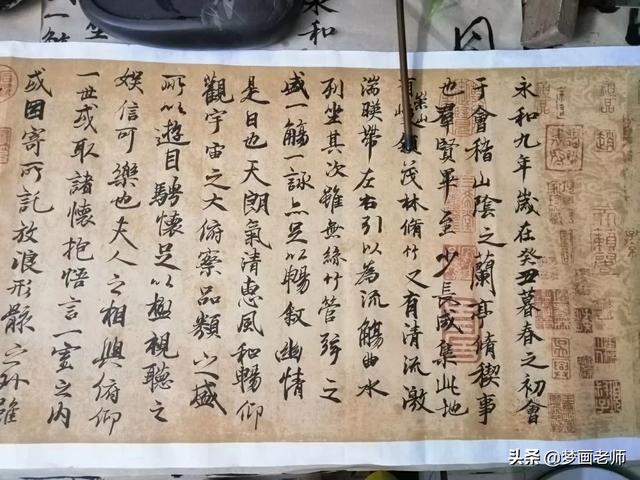 永和九年歲在癸丑暮春之初會
于會稽山陰之蘭亭脩稧事
也羣賢畢至少長咸集此地
有崇山峻領茂林脩竹又有清流激
湍暎帶左右引以為流觴曲水
列坐其次雖無絲竹管弦之
盛一觴一詠亦足以暢敘幽情
是日也天朗氣清惠風和暢仰
觀宇宙之大俯察品類之盛
所以遊目騁懷足以極視聽之
娛信可樂也夫人之相與俯仰
一世或取諸懷抱悟言一室之內
或因寄所託放浪形骸之外雖
头条 @梦画老师